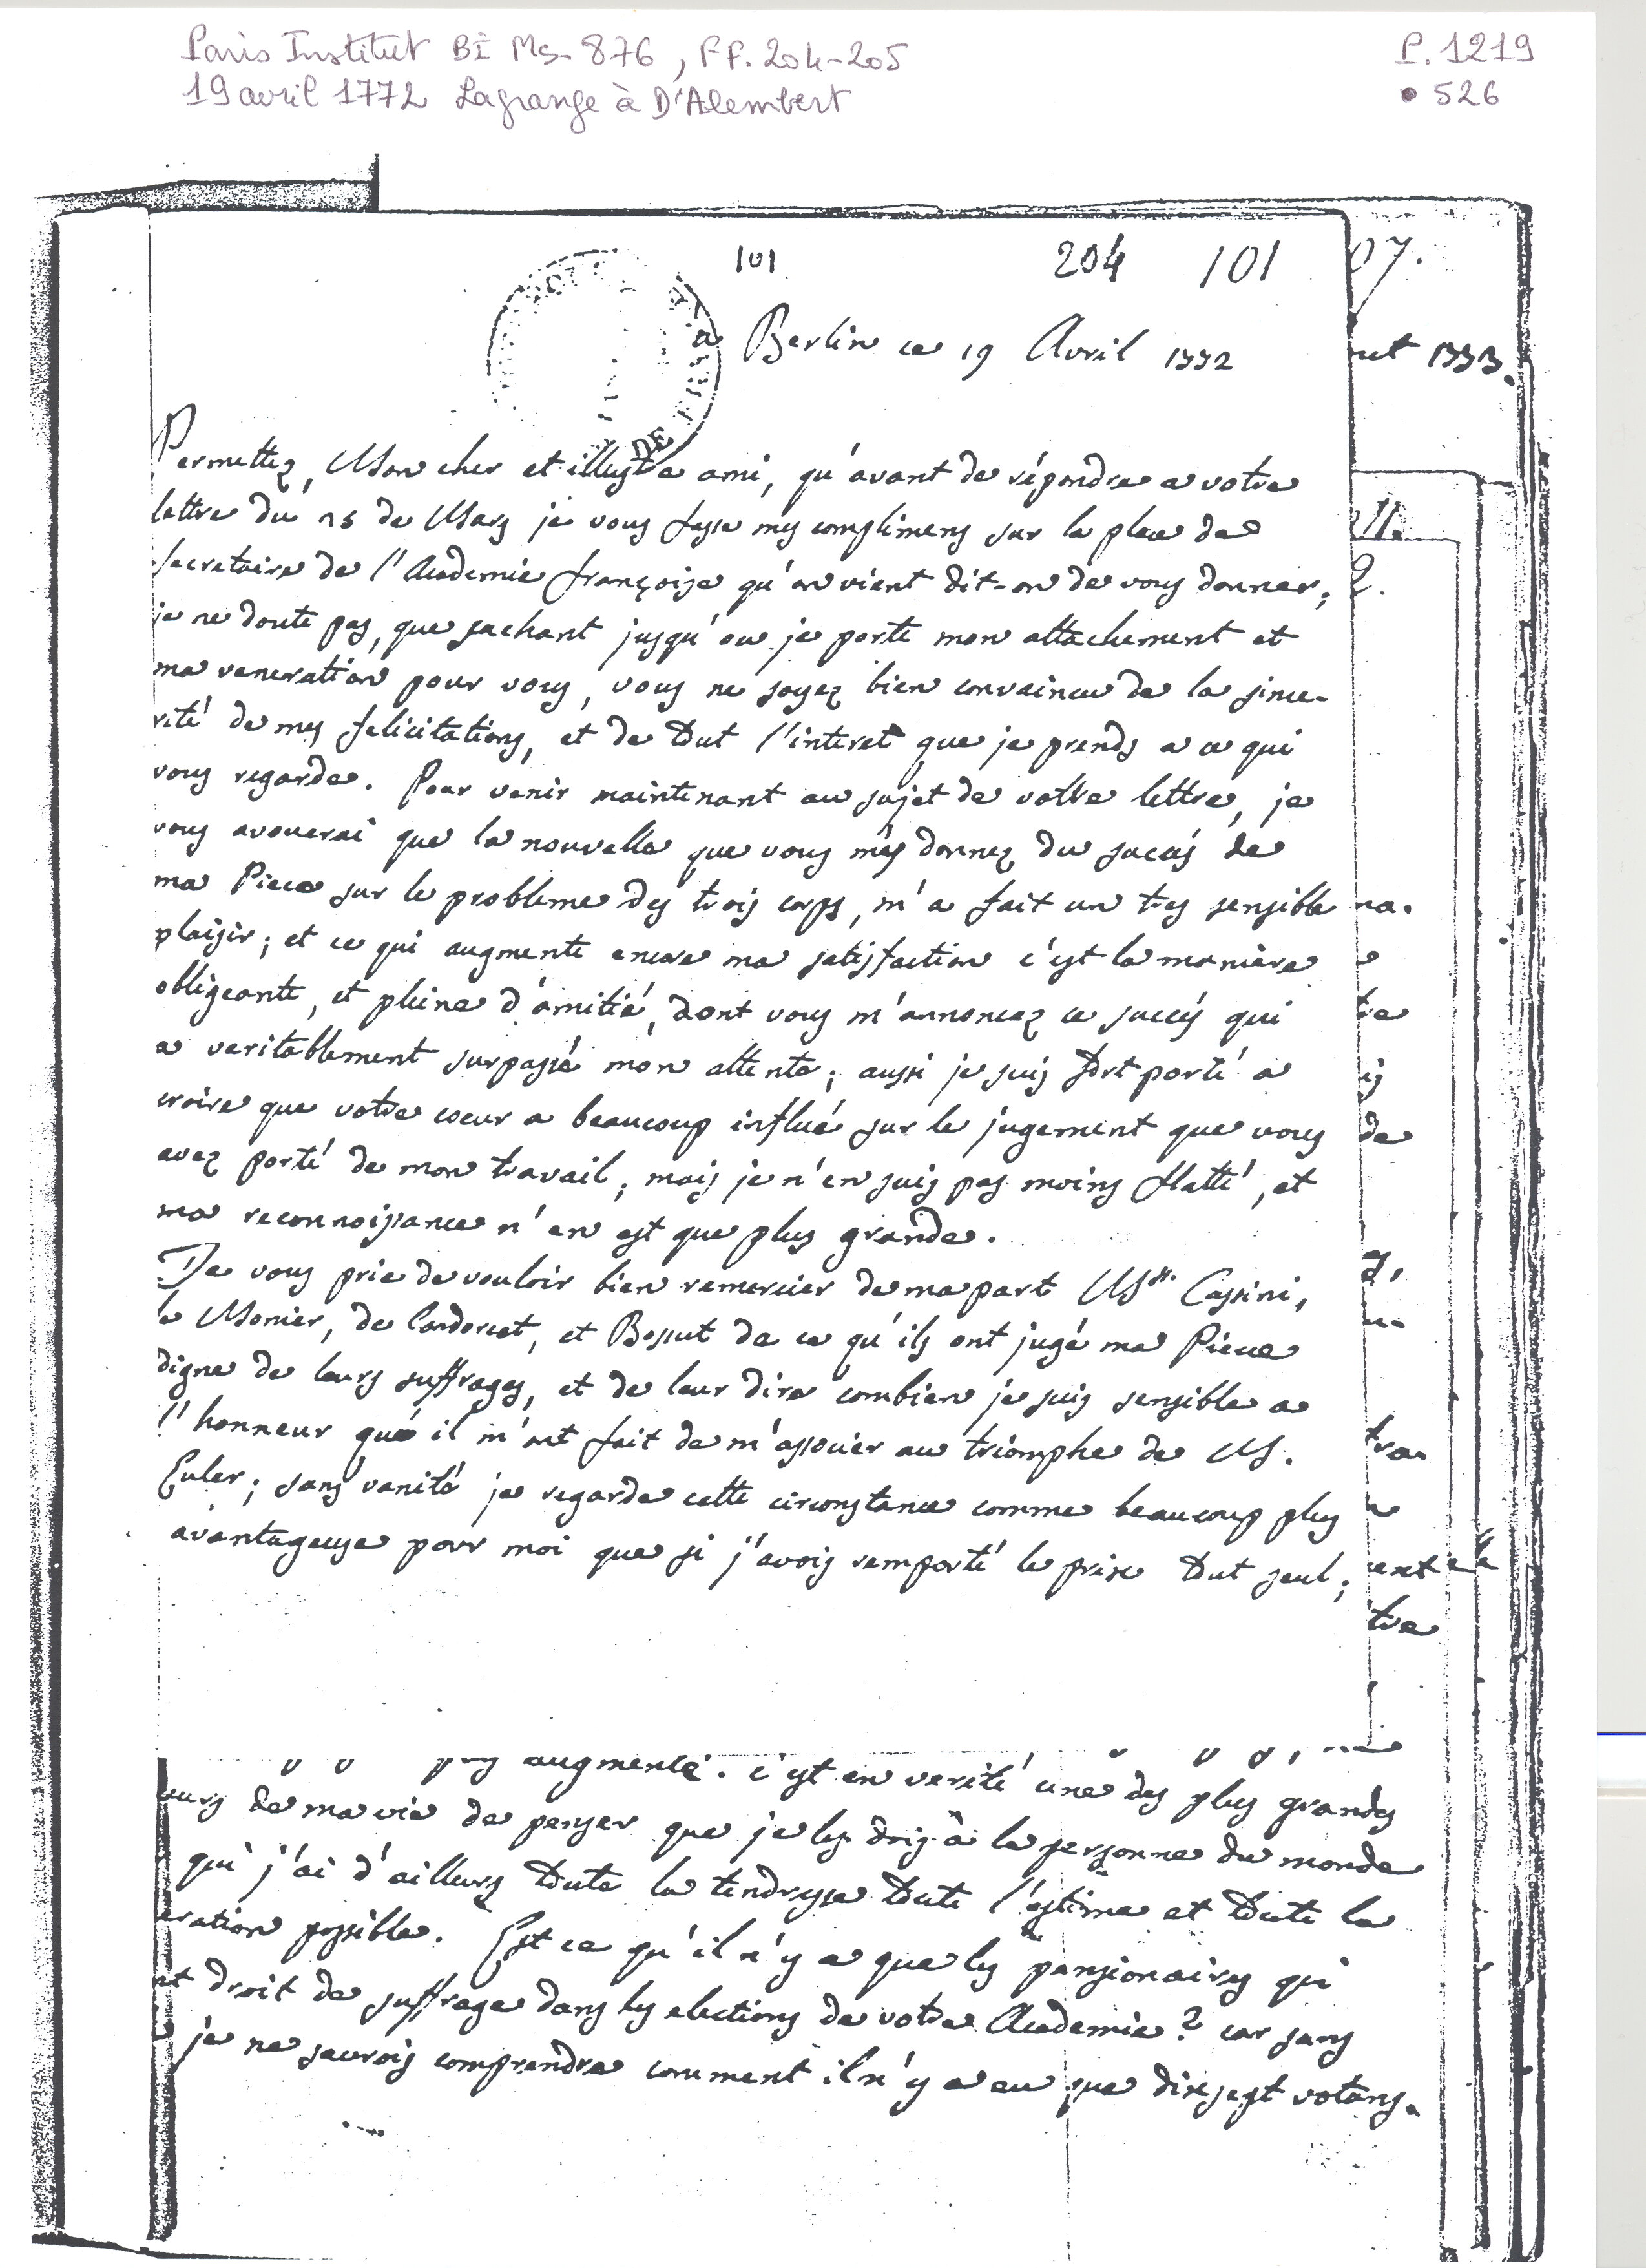 Paris Institut BI Ms. 876, FF. 204-205
P. 1219
19 avril 1772 Lagrange à D'Alembert
• 526
101
204 101
07.
DE FRA
a Berlin ce 19 Avril 1772
out 1773.
Permettez, Mon cher et illustre ami, qu'avant de répondre a votre
lettre du 25 de Mars je vous fasse mes complimens sur la place de
secretaire de l'Academie françoise qu'on vient dit-on de vous donner;
2.
je ne doute pas, que sachant jusqu'ou je porte mon attachement et
ma veneration pour vous, vous ne soyez bien convaincu de la since-
rité de mes felicitations, et de tout l'interet que je prends a ce qui
vous regarde. Pour venir maintenant au sujet de votre lettre, je
vous avouerai que la nouvelle que vous m'y donnez du succés de
ma Piece sur le probleme des trois corps, m'a fait un tres sensible
na.
plaisir; et ce qui augmente encore ma satisfaction c'est la maniere
e
obligeante, et pleine d'amitié, dont vous m'annoncez ce succés qui
tre
a veritablement surpassé mon attente; aussi je suis fort porté a
is
croire que votre coeur a beaucoup influé sur le jugement que vous
de
avez porté de mon travail; mais je n'en suis pas moins flatté, et
ma reconnoissance n'en est que plus grande.
Je vous prie de vouloir bien remercier de ma part Mrs. Cassini,
le Monier, de Condorcet, et Bossut de ce qu'ils ont jugé ma Piece
digne de leurs suffrages, et de leur dire combien je suis sensible a
l'honneur qu'il m'ont fait de m'associer au triomphe de M.
tra
Euler; sans vanité je regarde cette circonstance comme beaucoup plus
avantageuse pour moi que si j'avois remporté le prix tout seul;
ent
tre
augmenté. c'est en verité une des plus grandes
eurs de ma vie de penser que je les dois à la personne du monde
qui j'ai d'ailleurs toute la tendresse toute l'estime et toute la
eration possible. Est ce qu'il n'y a que les pensionaires qui
nt droit de suffrage dans les elections de votre Academie? car sans
je ne saurois comprendre comment il n'y a eu que dixsept votans.